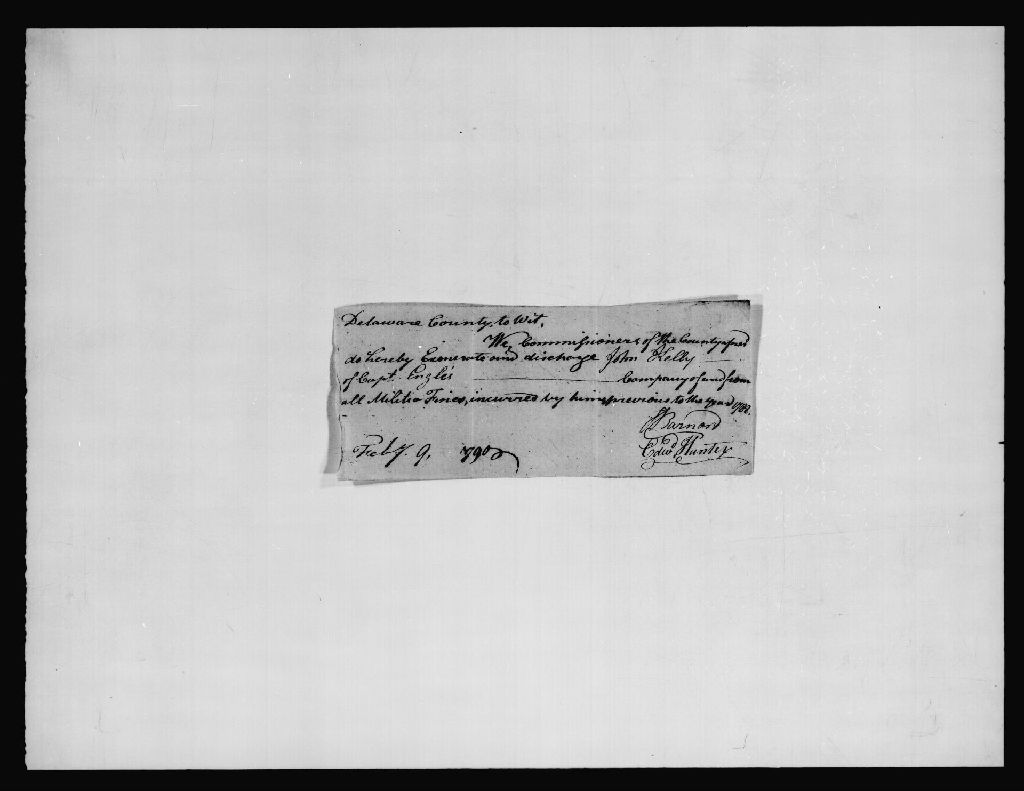 Delaware County, to Wit,
We, Commissioners of the County afsed
do hereby Exenerate and discharge John Kelly
of Capt. Engles Company of and from
all Militia Fines, incurred by him previous to the year
Barnard
Feby. 9, 790 Edwd Hunter